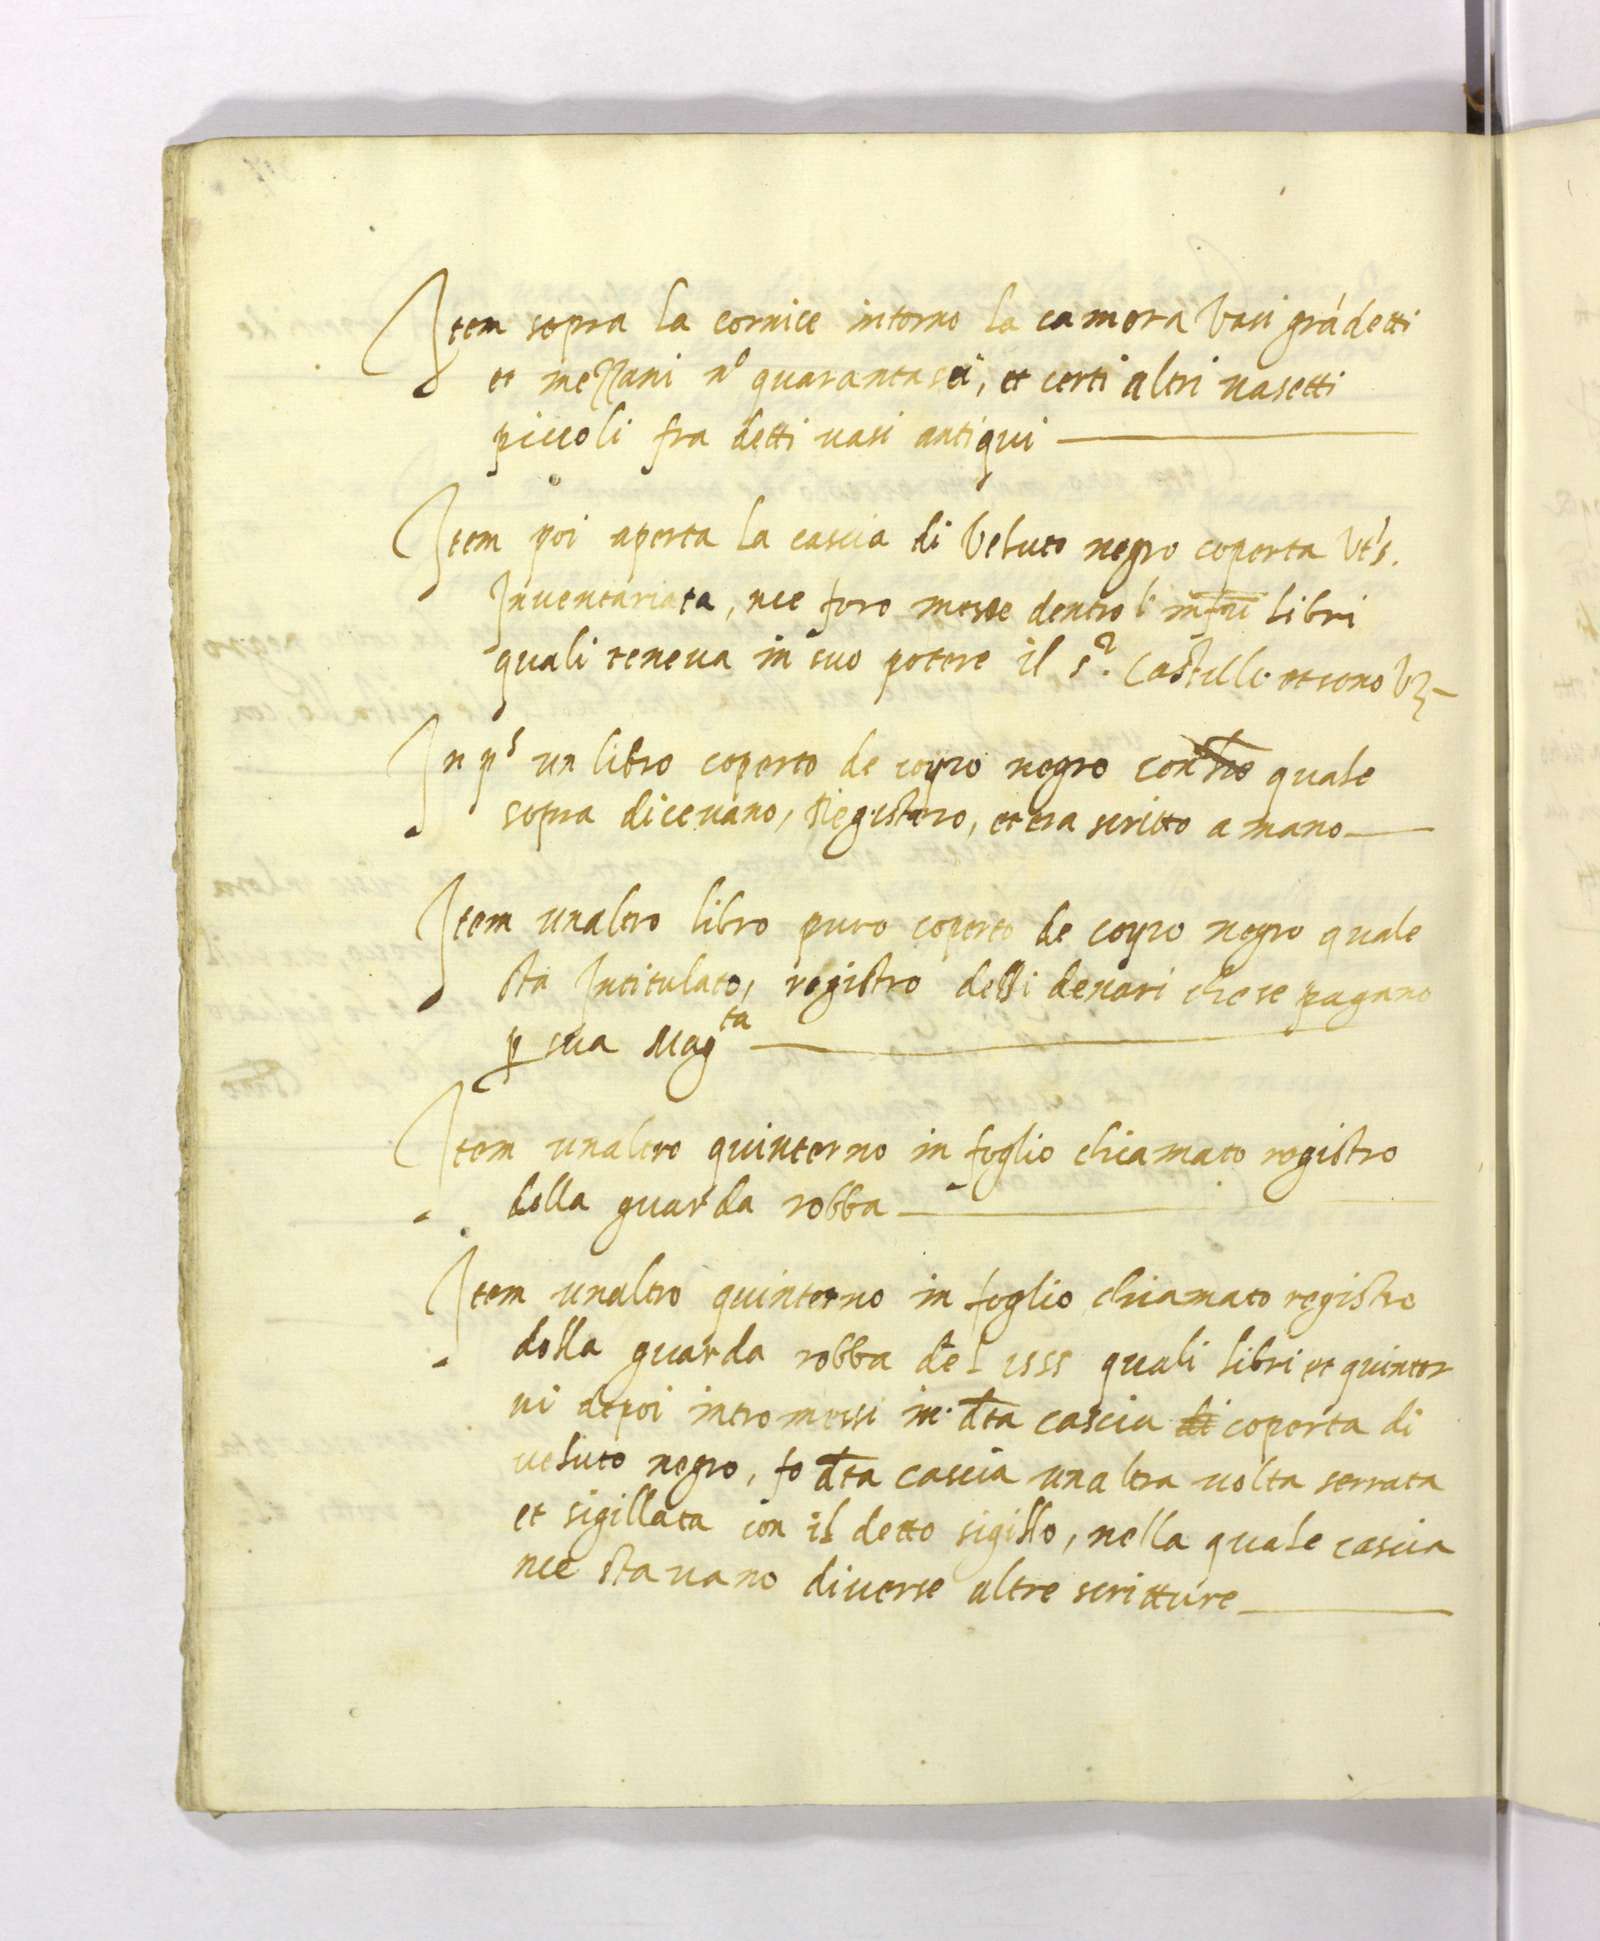 Item sopra la cornice intorno la camera Vasi grādetti
et mezzani nº quarantasei, et certi altri uasetti
piccoli fra detti uasi antiqui
Item poi aperta la cascia di Veluto negro coperta Vt s.
Inuentariata, nce foro messe dentro l' infri libri
quali teneua in suo potere il s.r Castelli et sono Vz
In ps un libro coperto de coyro negro quale
sopra diceuano, Registro, et era scritto a mano
Item unaltro libro puro coperto de coyro negro quale
sta Intitulato, registro delli denari che se pagano
p sua Magta
Item unaltro quinterno in foglio chiamato registro
della guarda robba
Item unaltro quinterno in foglio chiamato registro
della guarda robba del 1555 quali libri et quinter
ni depoi intromessi in dta cascia di coperta di
ueluto negro, fo dta cascia unaltra uolta serrata
et sigillata con il detto sigillo, nella quale cascia
nce stauano diuerse altre scritture